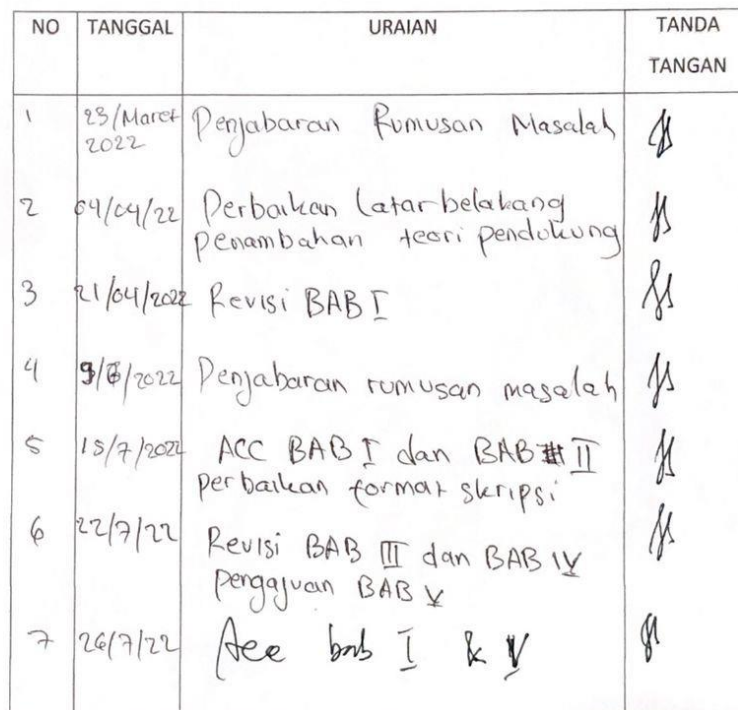 NO TANGGAL URAIAN TANDA TANGAN
1 23/Maret 2022 Penjabaran Rumusan Masalah
2 04/04/22 Perbaikan latar belakang
penambahan teori pendukung
3 21/04/2022 Revisi BAB I
4 9/6/2022 Penjabaran rumusan masalah
5 15/7/2022 ACC BAB I dan BAB II
perbaikan format skripsi
6 22/7/22 Revisi BAB III dan BAB IV
pengajuan BAB V
7 26/7/22 Acc bab I & V